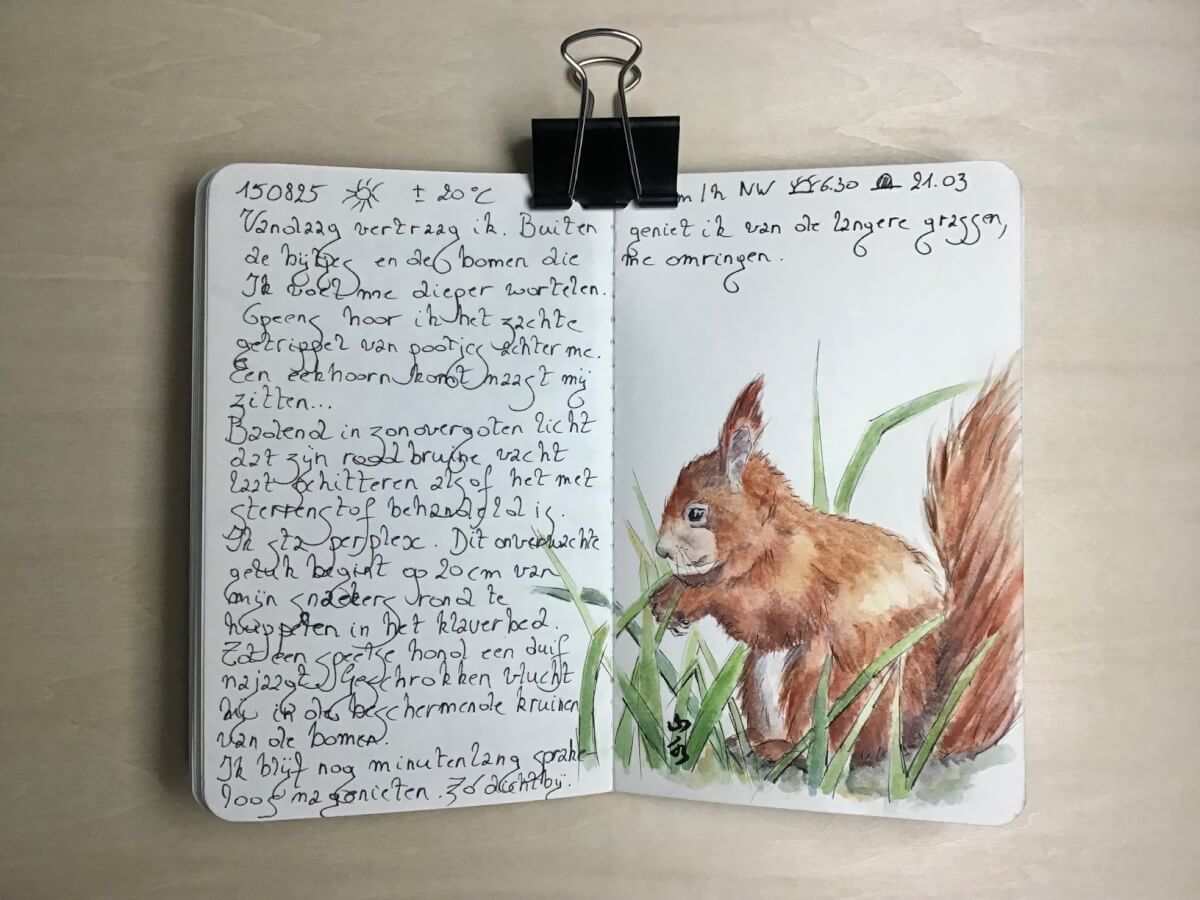 150825 ± 20°C m/h NW 6.30 21.03
Vandaag vertraag ik. Buiten geniet ik van de langere grassen,
de bijtjes en de bomen die me omringen.
Ik voel me dieper wortelen.
Opeens hoor ik het zachte
getrippel van pootjes achter me.
Een eekhoorn komt naast mij
zitten...
Badend in zonovergoten licht
dat zijn roodbruine vacht
laat schitteren alsof het met
sterrenstof behandeld is.
Ik sta perplex. Dit onverwachte
geluk begint op 20cm van
mijn sneakers rond te
huppelen in het klaverbed.
Tot een speelse hond een duif
najaagt. Geschrokken vlucht
hij in de beschermende kruinen
van de bomen.
Ik blijf nog minutenlang sprake-
loos nagenieten. Zo dichtbij.